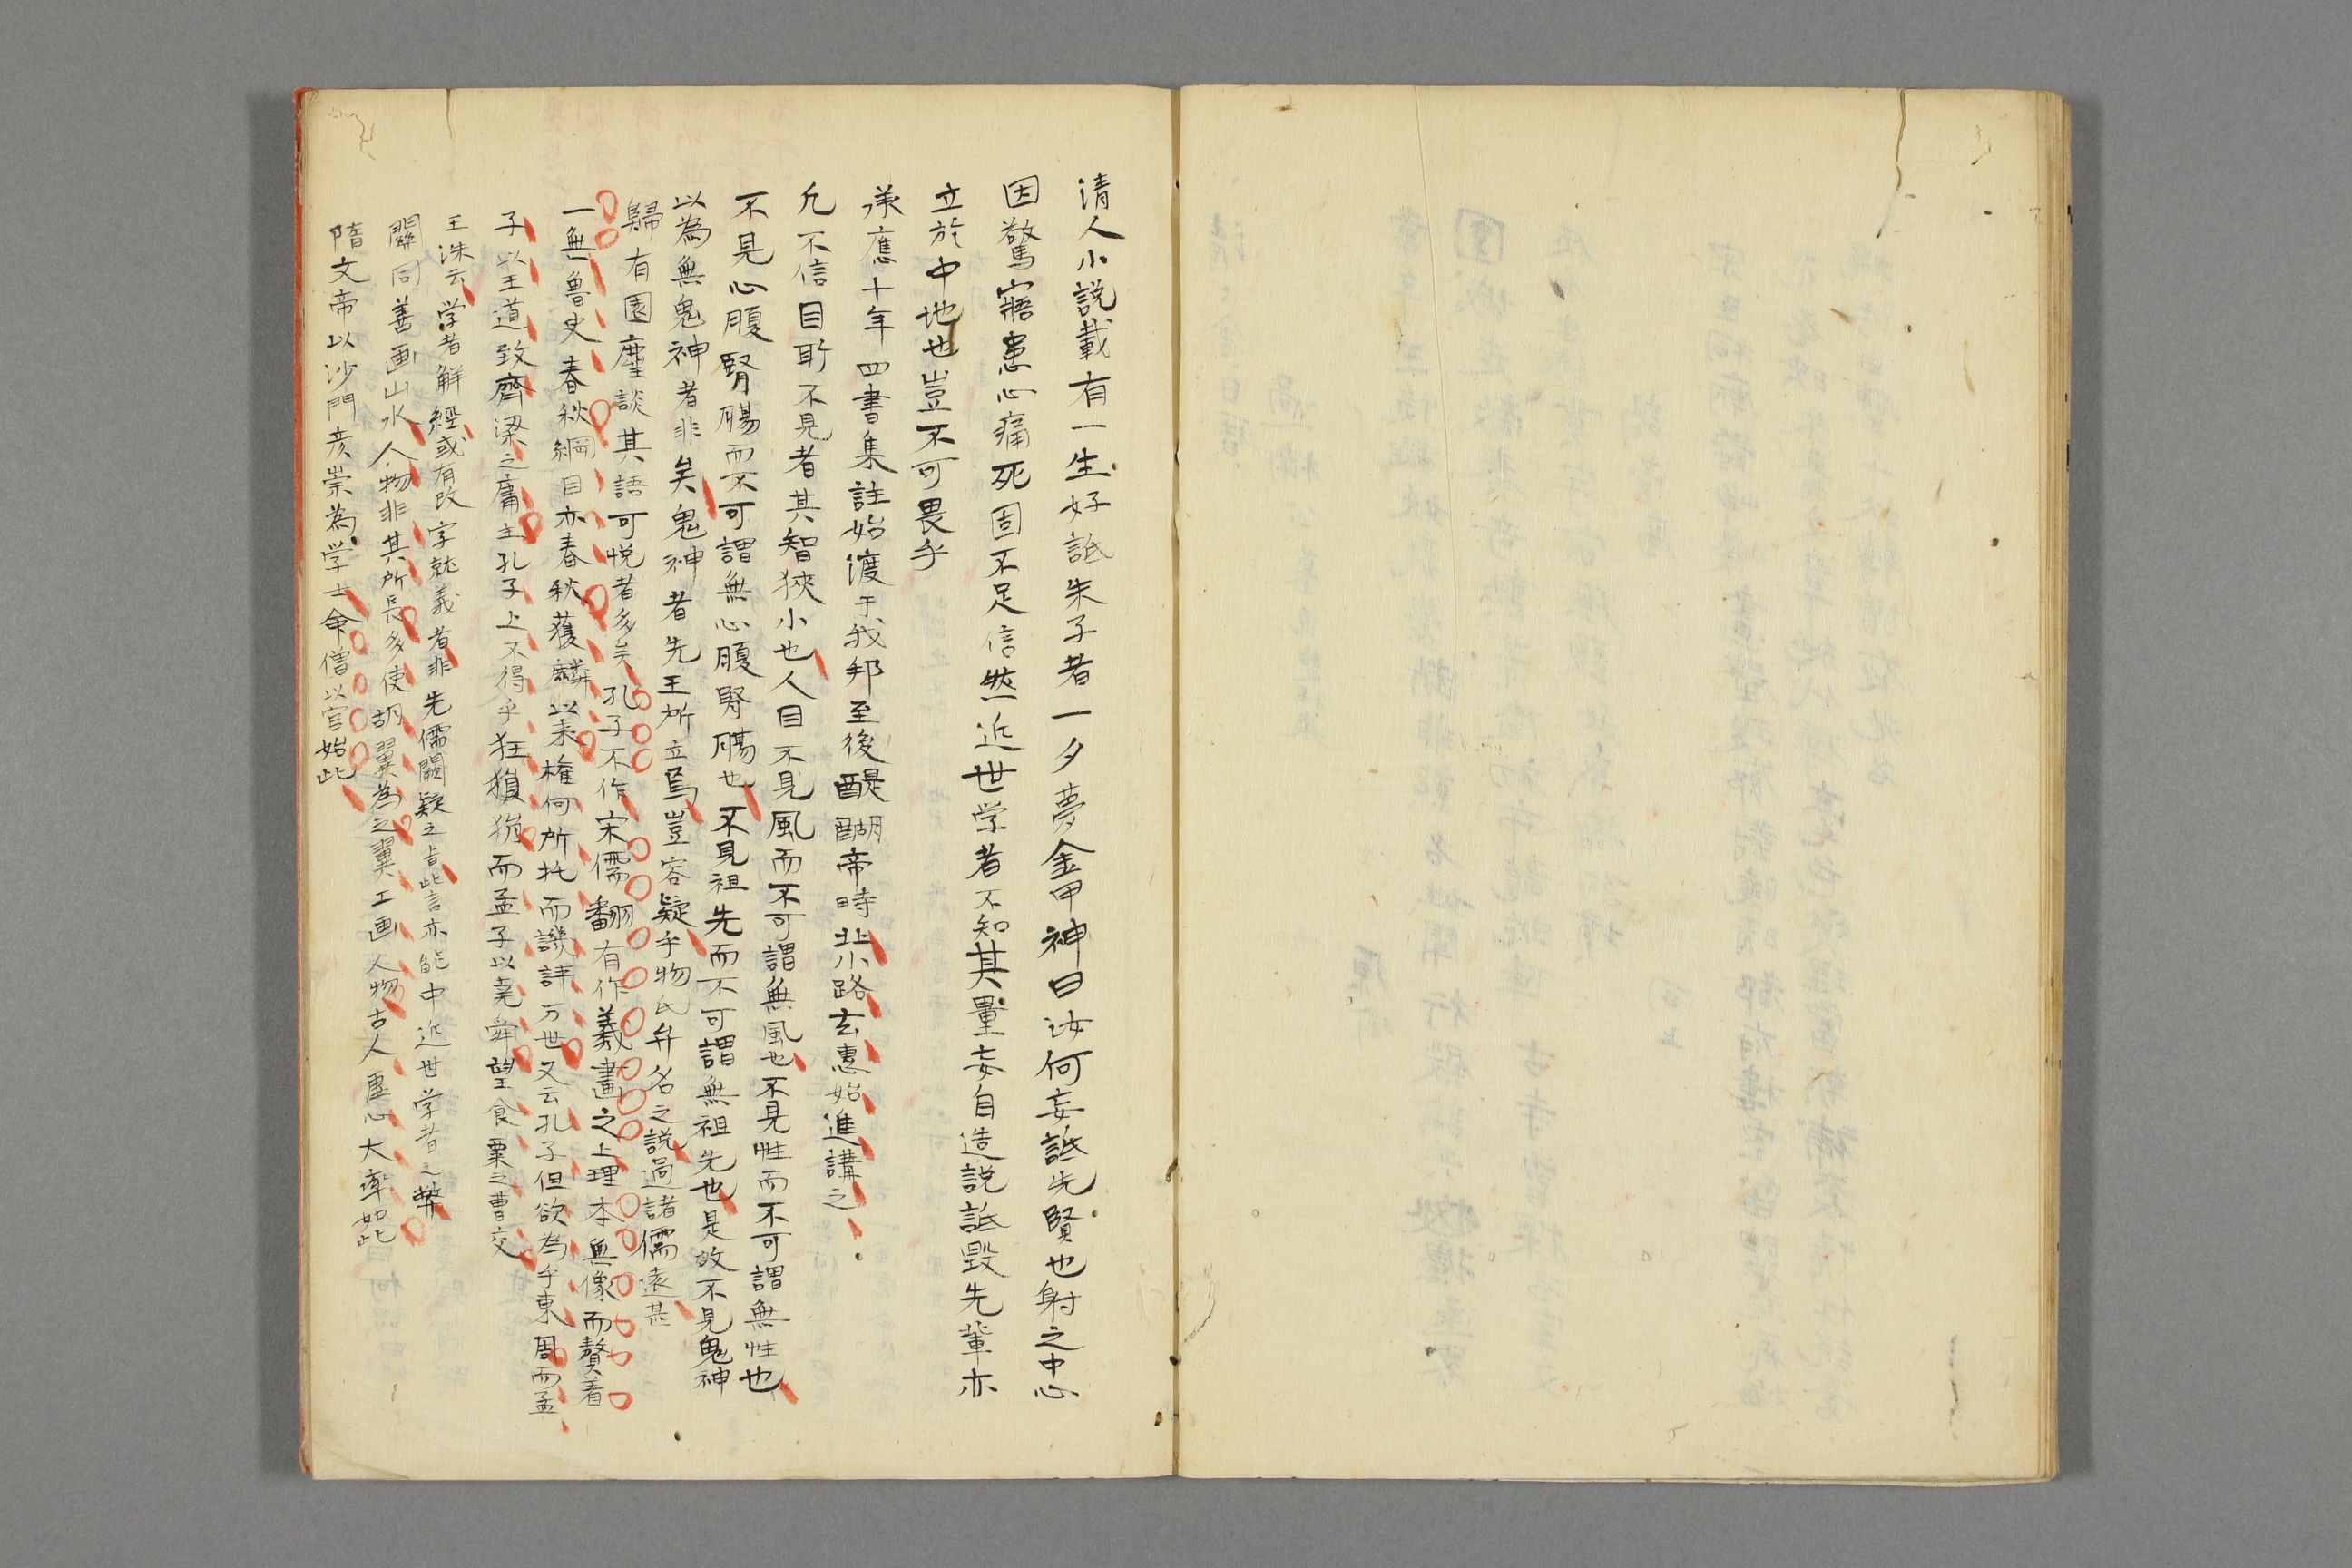 清人小説載有一生好詆朱子者一夕夢金甲神曰汝何妄詆先賢也射之中心
因驚寤患心痛死固不足信然近世学者不知其量妄自造説詆毀先輩亦
立於中地也豈不可畏乎
承應十年四書集註始渡于我邦至後醍醐帝時北小路玄惠始進講之
凡不信目所不見者其智狹小也人目不見風而不可謂無風也不見性而不可謂無性也
不見心腹腎腸而不可謂無心腹腎腸也不見祖先而不可謂無祖先也是故不見鬼神
以為無鬼神者非矣鬼神者先王所立焉豈容疑乎物氏弁名之説過諸儒遠甚
歸有園麈談其語可悦者多矣孔子不作宋儒翻有作羲畫之上理本無像而贅着
一無魯史春秋綱目亦春秋獲麟以来権何所托而譏評万世又云孔子但欲為乎東周而孟
子以王道致齊梁之庸主孔子上不得乎狂狷而孟子以堯舜望食粟之曹交
王洙云学者解經或有改字就義者非先儒闕疑之旨此言亦能中近世学者之弊
關同善画山水人物非其所長多使胡翼為之翼工画人物古人虚心大率如此
隋文帝以沙門彦崇為学士命僧以官始此